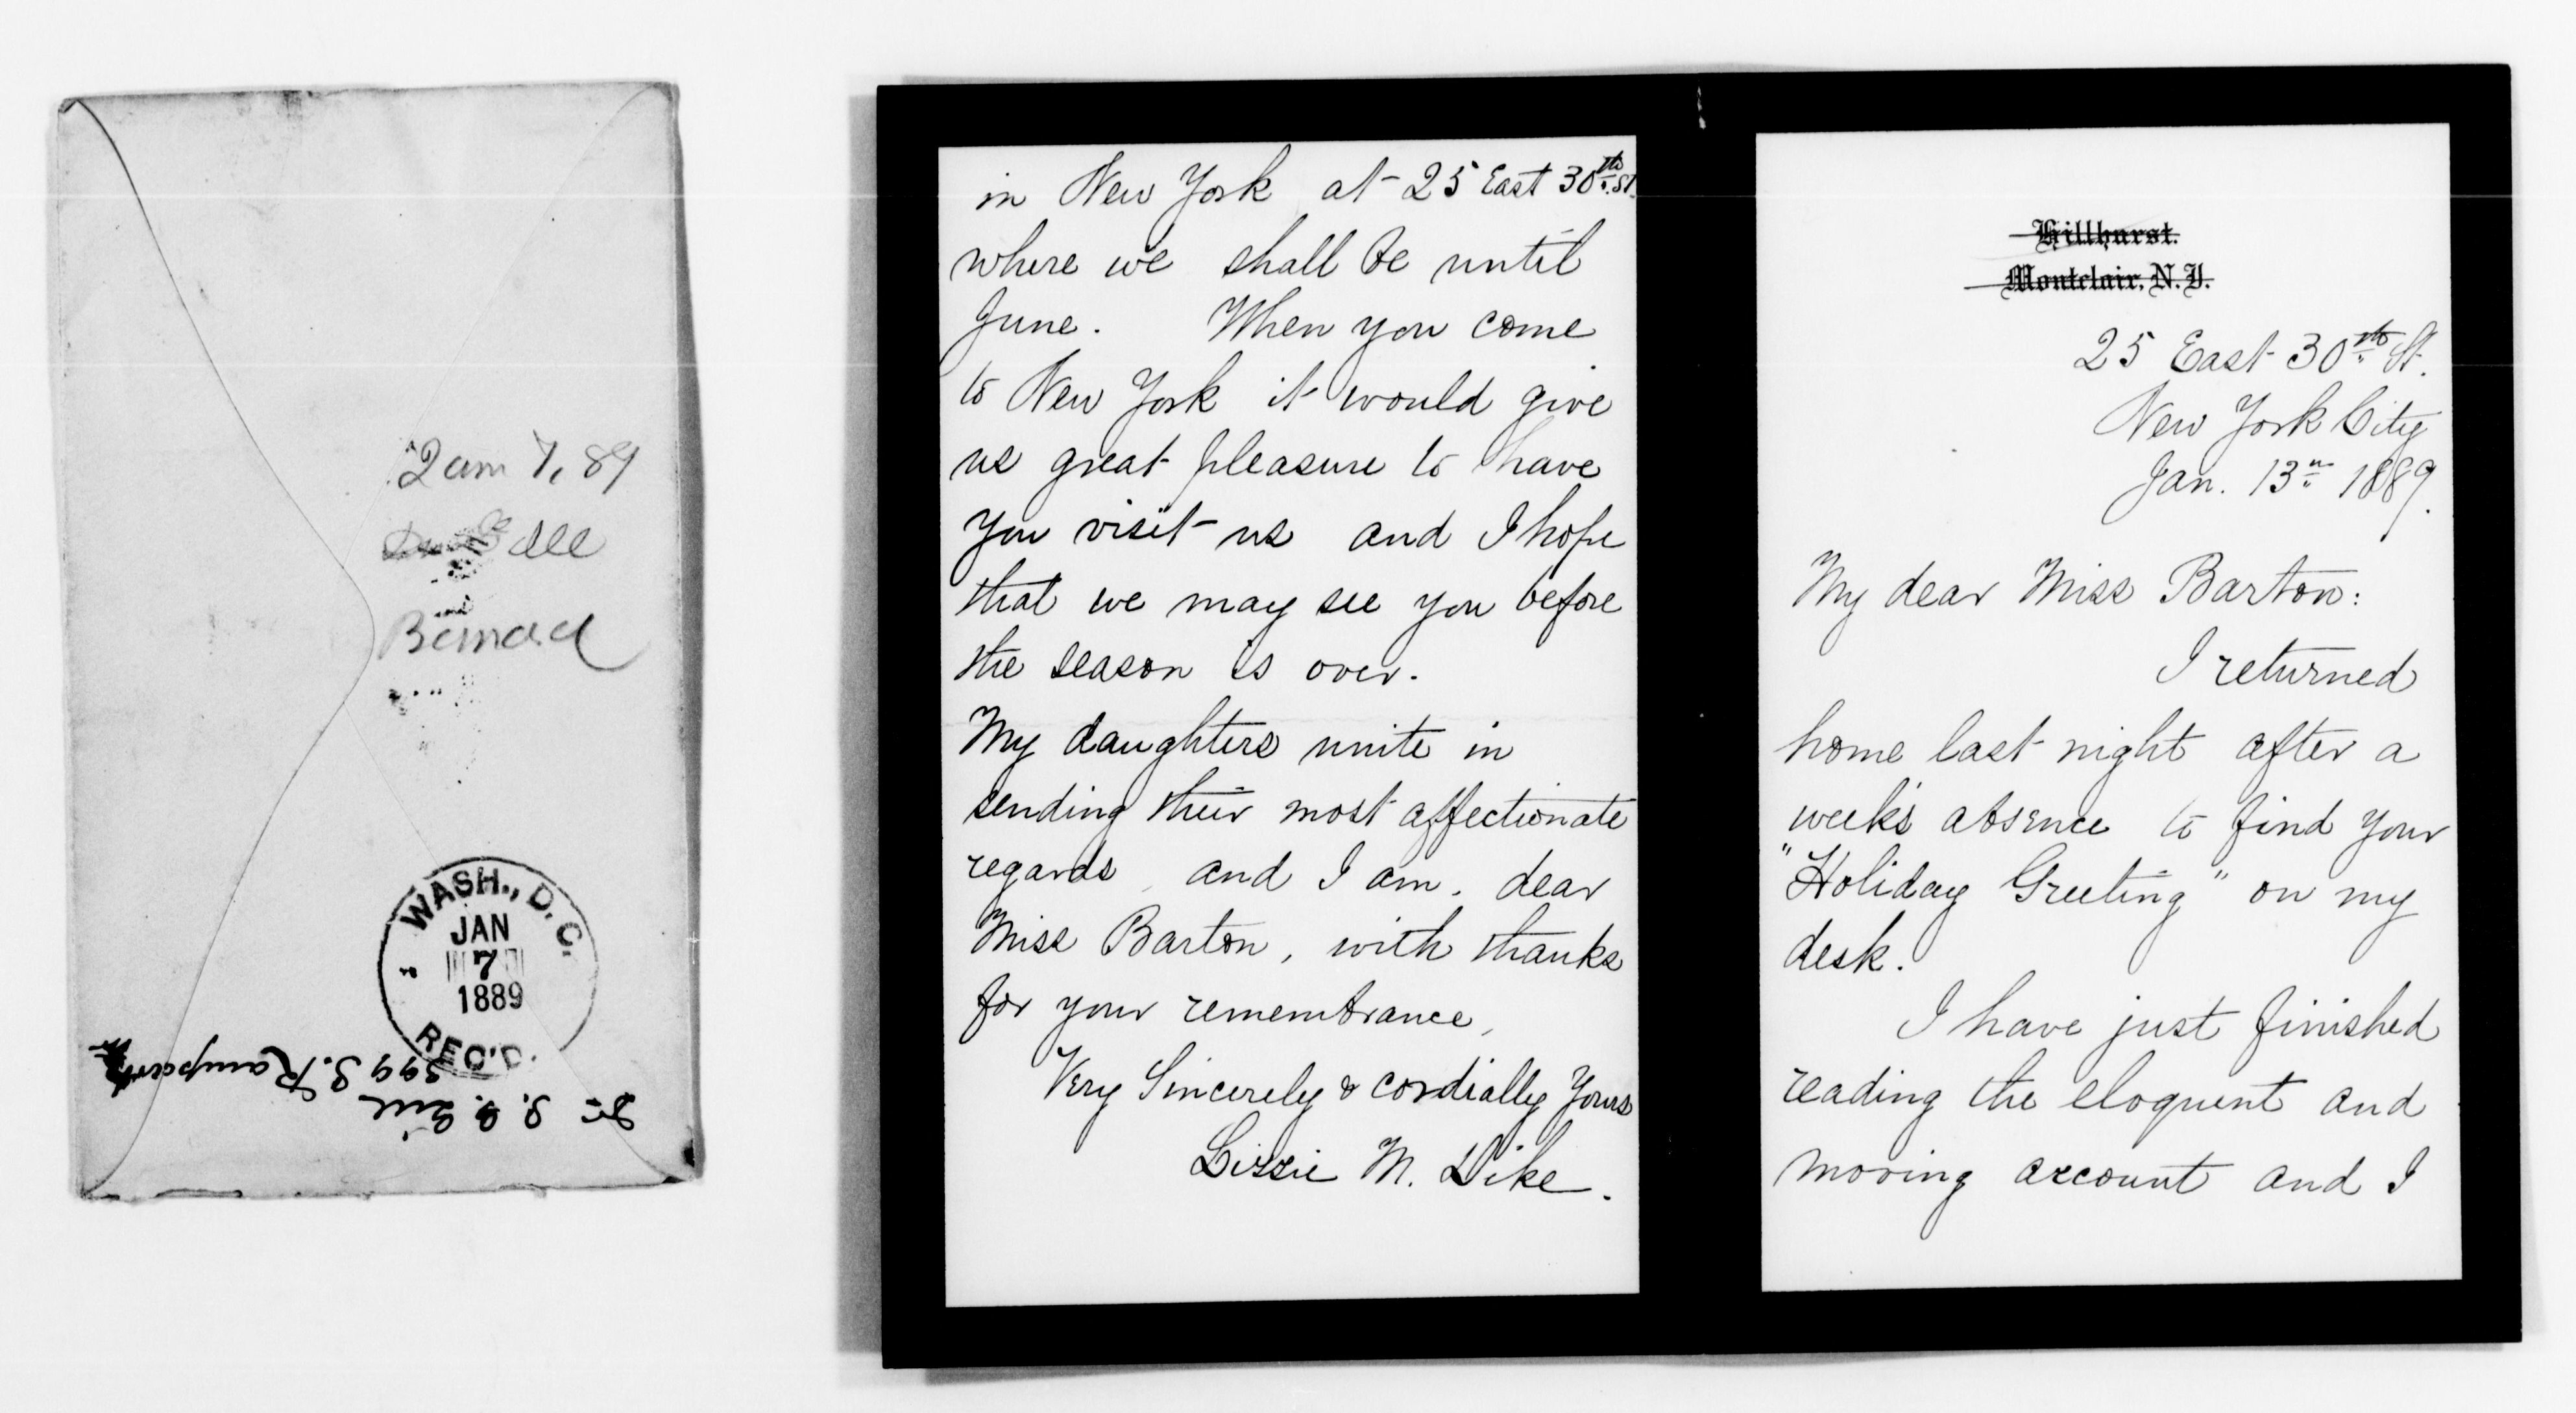 Jan 7, 89
Bernard
WASH., D.C.
JAN
7
1889
REC'D.
399 S. Rampart
Dr J. G. Gill
in New York at 25 East 30th St.
where we shall be until
June. When you come
to New York it would give
us great pleasure to have
you visit us and I hope
that we may see you before
the season is over.
My daughters unite in
sending their most affectionate
regards and I am, dear
Miss Barton, with thanks
for your remembrance,
Very Sincerely & cordially Yours
Lizzie M. Dike.
Hillhurst.
Montclair, N. J.
25 East 30th St.
New York City
Jan. 13th 1889.
My dear Miss Barton:
I returned
home last night after a
week's absence to find your
"Holiday Greeting" on my
desk.
I have just finished
reading the eloquent and
moving account and I